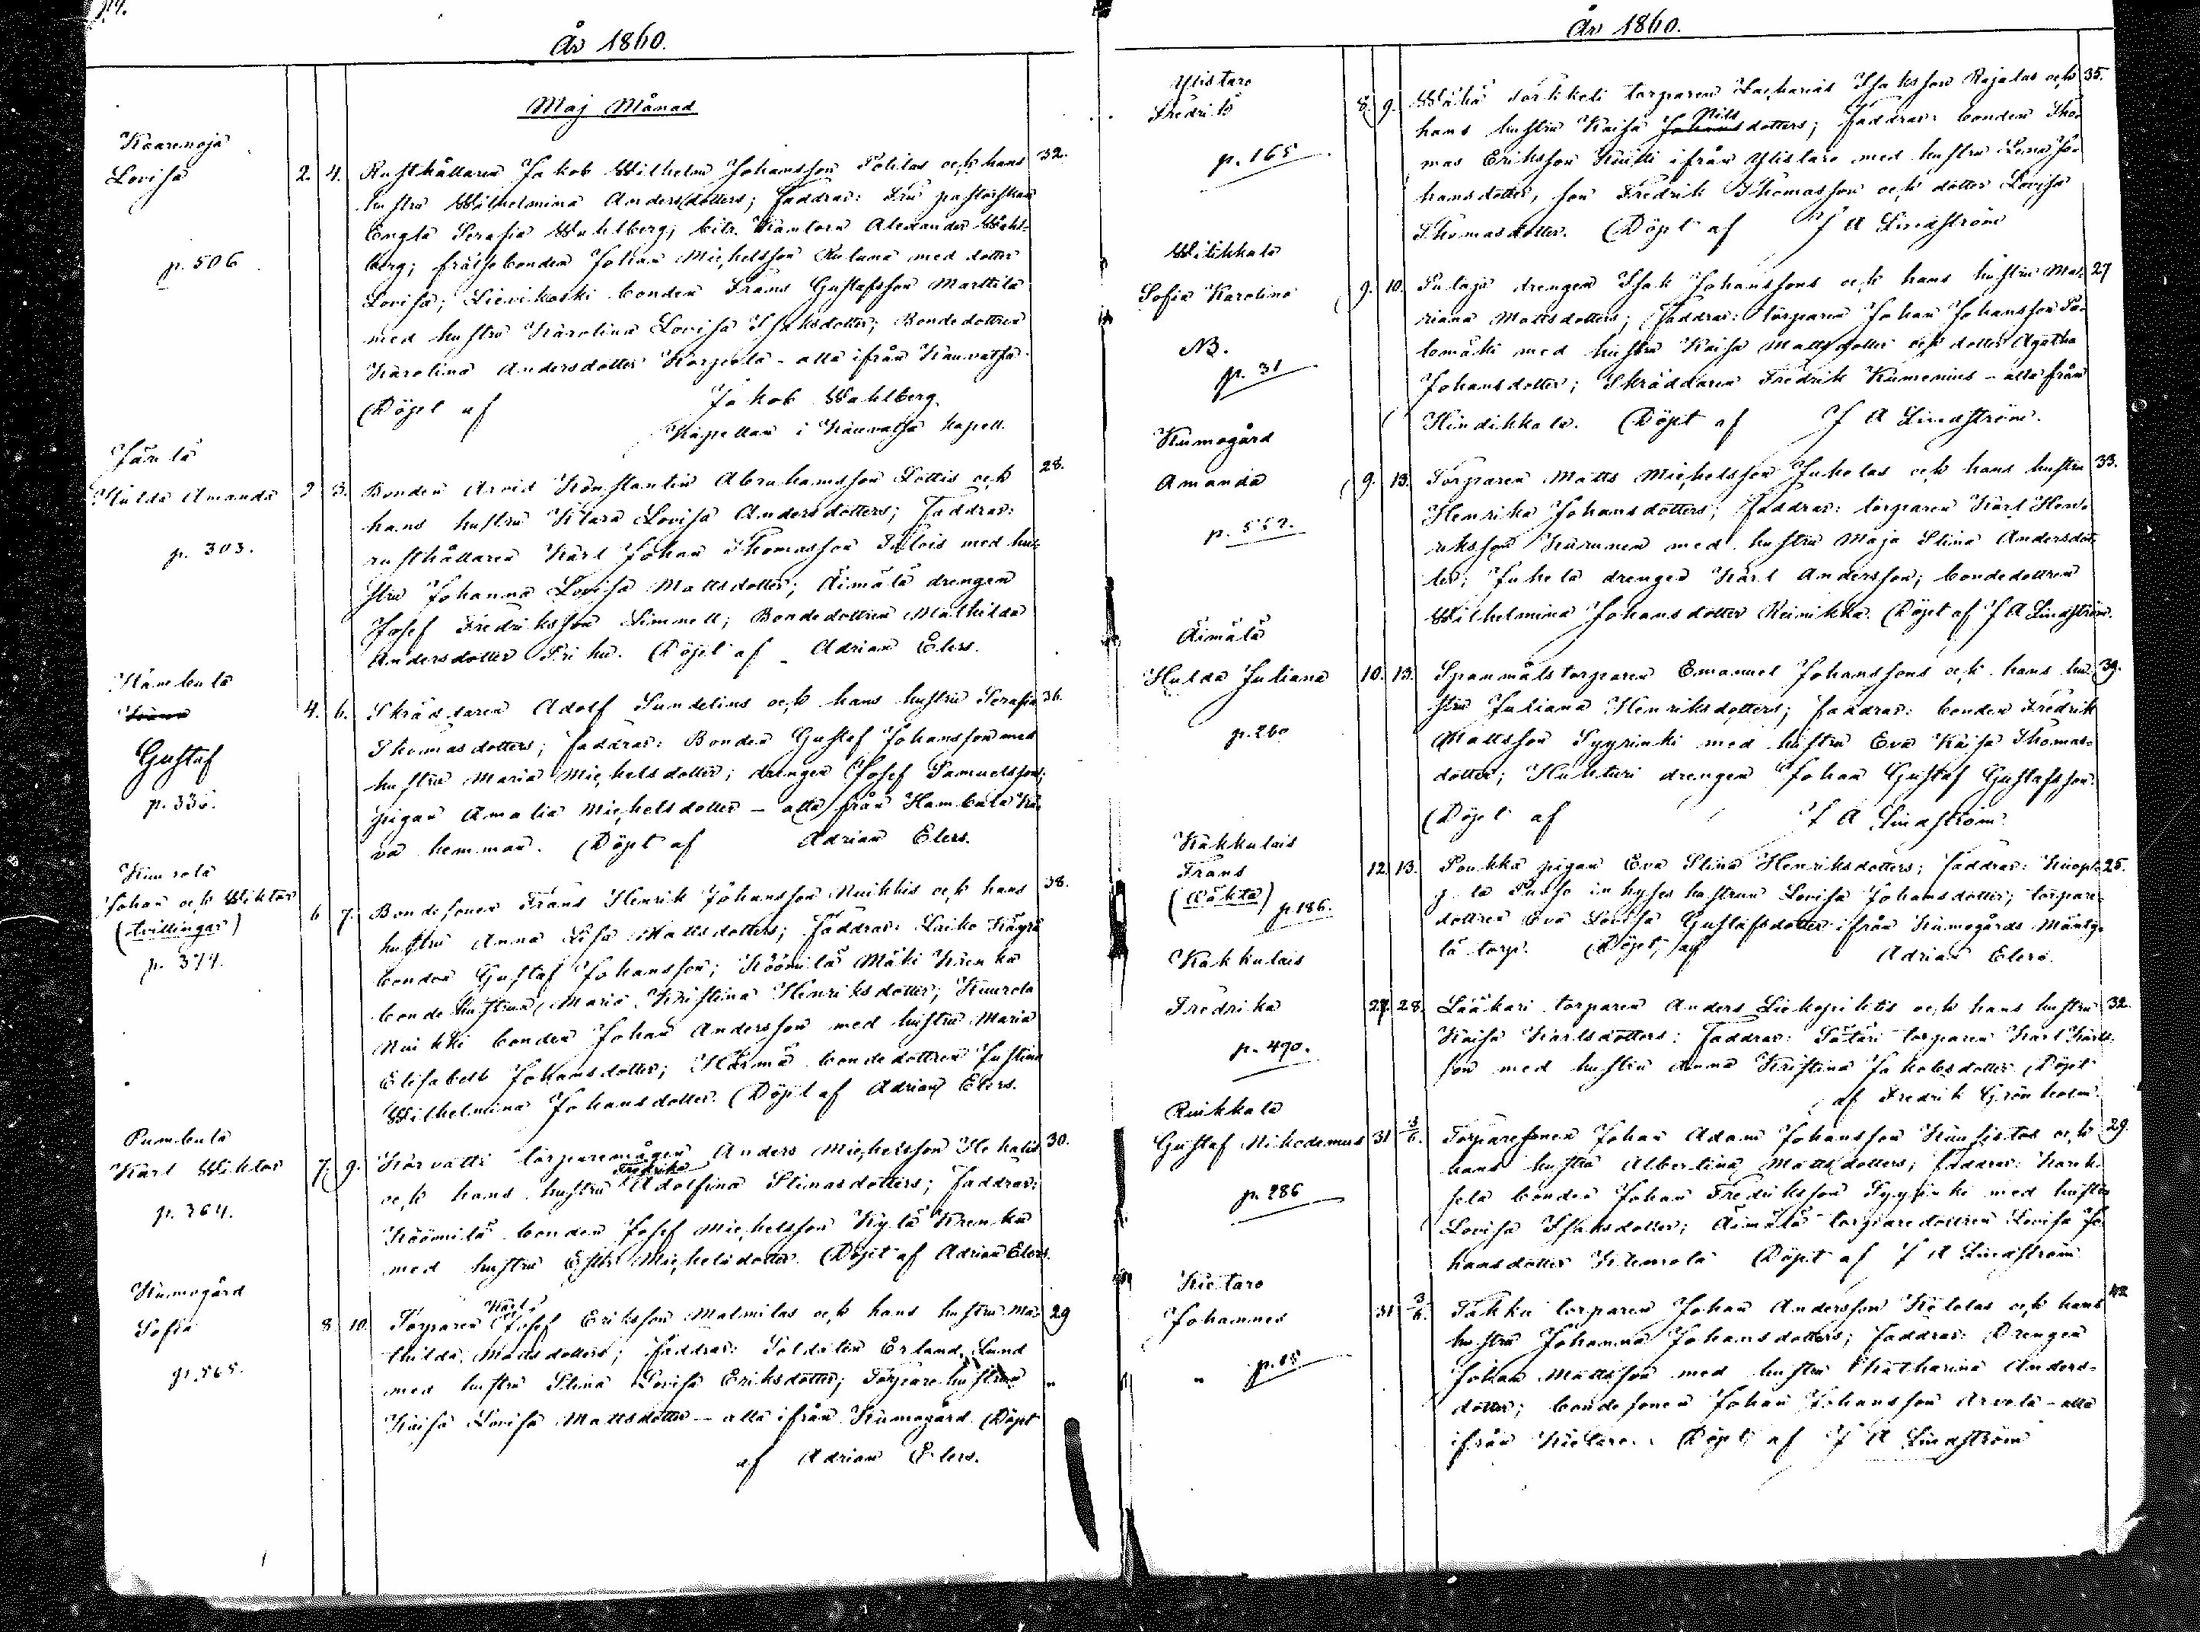 År 1860.
Maj Månad
Kaarenoja
Lovisa
p. 506
2. 4. Rusthållaren Jakob Wilhelm Johansson Potilas och hans 32.
hustru Wilhelmina Andersdotters; faddrar: Fru pastorskan
Engla Serafia Wahlberg; bitr. Kantorn Alexander Wahl-
berg; frälsebonden Johan Michelsson Rulana med dotter
Lovisa; Lievikoski bonden Frans Gustafsson Marttila
med hustru Karolina Lovisa Isaksdotter; Bondedottren
Karolina Andersdotter Korpela - alla ifrån Kauvatsa.
(Döpt af Jakob Wahlberg.
Kapellan i Kauvatsa kapell.
Hulda Amanda
p. 303.
2 3. Bonden Arvid Konstantin Abrahamsson Lottis och 28.
hans hustru Klara Lovisa Andersdotters; Faddrar:
rusthållaren Karl Johan Thomasson Filois med hu-
stru Johanna Lovisa Mattsdotter; Äimälä drengen
Josef Fredriksson Simmell; Bondedottren Mathilda
Andersdotter Prihu. (Döpt af Adrian Elers.
Hämbula
Gustaf
p. 335.
4. 6. Skräddaren Adolf Sundelius och hans hustru Serafia 36.
Thomasdotters; faddrar: Bonden Gustaf Johansson med
hustru Maria Michelsdotter; drengen Josef Samuelsson;
pigan Amalia Michelsdotter - alla från Hambula Ka-
va hemman. (Döpt af Adrian Elers.
Kuurola
Johan och Wiktor
(tvillingar)
p. 374.
6 7. Bondesonen Frans Henrik Johansson Nuikkis och hans 38.
hustru Anna Lisa Mattsdotters; Faddrar: Laiko Kägrä
bonden Gustaf Johansson; Köömilä Mäki Krenka
bondehustrun Maria Kristina Henriksdotter; Kuurola
Nuikki bonden Johan Andersson med hustru Maria
Elisabeth Johansdotter; Härmä bondedottren Justina
Wilhelmina Johansdotter. (Döpt af Adrian Elers.
Pumbula
Karl Wiktor
p. 364.
7. 9. Horvatti torparemågen Anders Michelsson Hohalis 30.
Fredrika
och hans hustru Adolfina Stinasdotters; Faddrar:
Köömilä bonden Josef Michelsson Kylä Krenka
med hustru Esther Michelsdotter. (Döpt af Adrian Elers.
Kumogård
Sofia
p. 565.
Karl
8 10. Torparen Josef Eriksson Malmilas och hans hustru Ma- 29
thilda Mattsdotters; faddrar: Soldaten Erland Lund
med hustru Stina Lovisa Eriksdotter; Torparehustrun
Kaisa Lovisa Mattsdotter - alla ifrån Kumogård. (Döpt
af Adrian Elers.
År 1860.
Ylistaro
Fredrik
p. 165
8. 9. Wähä Sorkkeli torparen Zacharias Isaksson Rajalas och 35.
Nils
hans hustru Kaisa Johansdotters; faddrar: bonden Tho-
mas Eriksson Knuti ifrån Ylistaro med hustru Lena Jo-
hansdotter, son Fredrik Thomasson och dotter Lovisa
Thomasdotter. (Döpt af J A Lindström
Wiikkala
Sofia Karolina
NB.
p. 31
9. 10. Pulaja drengen Isak Johanssons och hans hustru Ma- 27
riana Mattsdotters; Faddrar: torparen Johan Johansson Pa-
lomäki med hustru Kaisa Mattsdotter och dotter Agatha
Johansdotter; Skräddaren Fredrik Kumenius - alla från
Hindikkala. (Döpt af J A Lindström.
Kumogård
Amanda
p. 552.
9. 13. Torparen Matts Michelsson Juholas och hans hustru 33.
Henrika Johansdotters; Faddrar: torparen Karl Hen-
riksson Kurunen med hustru Maja Stina Andersdot-
ter; Juhola drengen Karl Andersson; bondedottren
Wilhelmina Johansdotter Reinikka. (Döpt af J A Lindström.
Äimälä
Hulda Juliana
p. 260
10. 13. Spanmålstorparen Emanuel Johanssons och hans hu- 39.
stru Juliana Henriksdotters; faddrar: bonden Fredrik
Mattsson Pyyrinki med hustru Eva Kaisa Thomas-
dotter; Huhturi drengen Johan Gustaf Gustafsson.
(Döpt af J A Lindström.
Kakkulais
Frans
(Oäkta) p. 186.
12 13. Poukka pigan Eva Stina Henriksdotters; faddrar: 25.
inhyses hustrun Lovisa Johansdotter; torpare-
dottren Eva Lovisa Gustafsdotter ifrån Kumogårds Mänty-
lä torp. (Döpt af Adrian Elers.
Kakkulais
Fredrika
p. 490.
27. 28. Lääkari torparen Anders Liehopiltis och hans hustru 32.
Kaisa Karlsdotters: Faddrar: Satari torparen Karl Karls-
son med hustru Anna Kristina Jakobsdotter (Döpt
af Fredrik Grönholm.
Ruikkala
Gustaf Nikodemus
p. 286
31 3/6. Torparesonen Johan Adam Johansson Kuusistos och 29
hans hustru Albertina Mattsdotters; faddrar: Kark-
sela bonden Johan Fredriksson Pyysinki med hustru
Lovisa Isaksdotter; Äimälä torparedottren Lovisa Jo-
hansdotter Kilemola (Döpt af J A Lindström
Kietaro
Johannes
p. 18
31 3/6. Takku torparen Johan Andersson Kulolas och hans 42
hustru Johanna Johansdotters; faddrar: Drengen
Johan Mattsson med hustru Katharina Anders-
dotter; bondesonen Johan Johansson Arvela - alla
ifrån Kietaro. (Döpt af J A Lindström